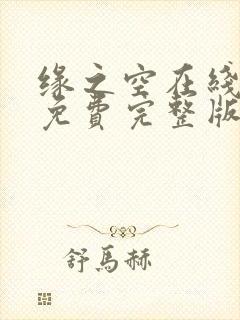 缘之空在线
免費完整版
舒馬赫